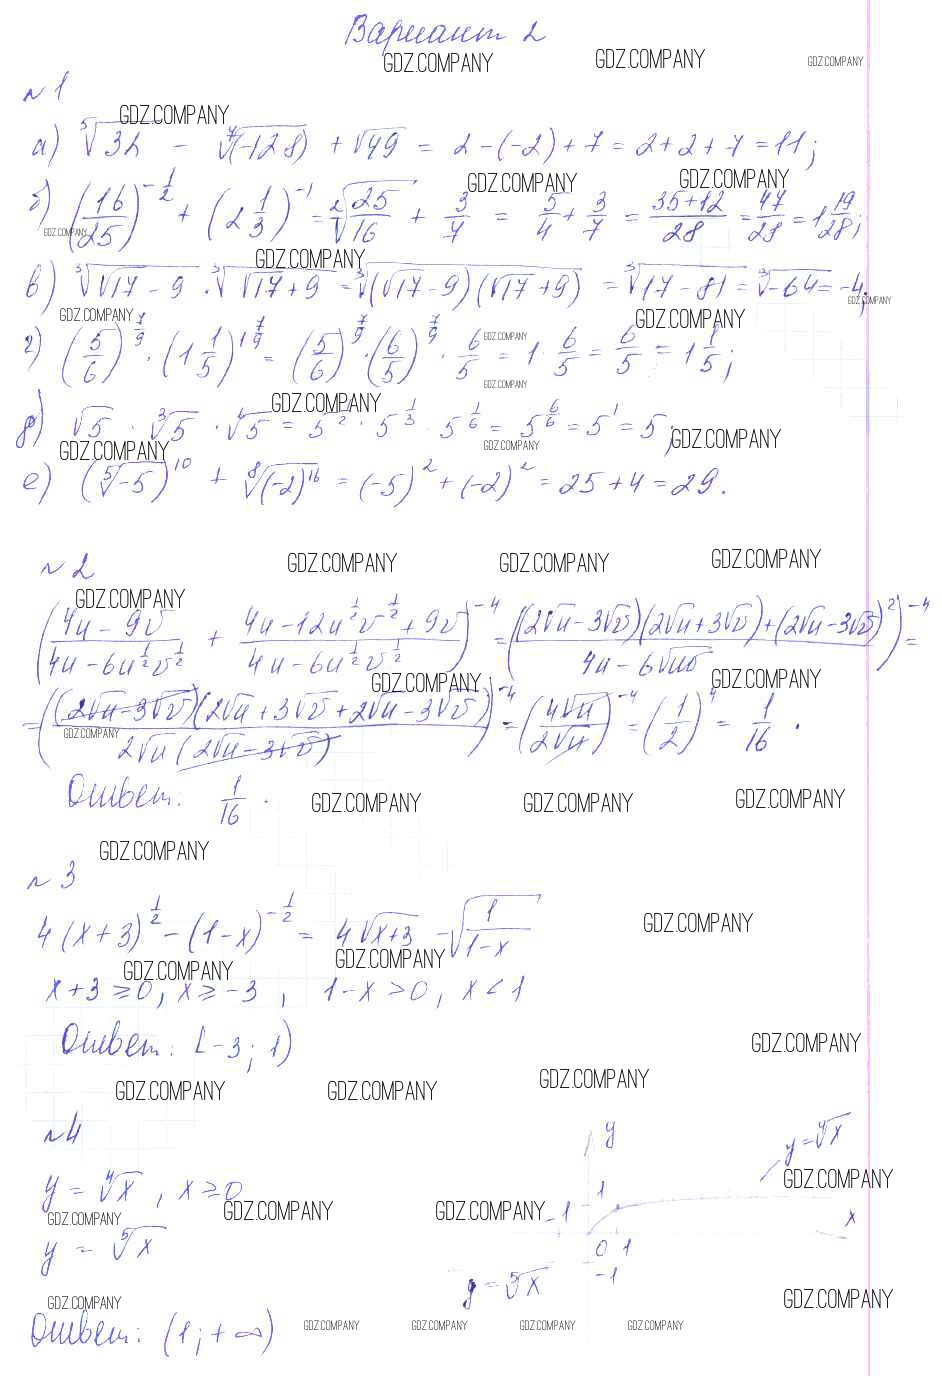 Вариант 2
GDZ.COMPANY GDZ.COMPANY GDZ.COMPANY
№1
GDZ.COMPANY
а) ⁵√32 - ⁷√(-128) + √49 = 2-(-2)+7 = 2+2+7 = 11;
GDZ.COMPANY GDZ.COMPANY
б) (16/25)^(-1/2) + (2 1/3)^(-1) = ²√(25/16) + 3/7 = 5/4 + 3/7 = (35+12)/28 = 47/28 = 1 19/28;
GDZ.COMPANY
GDZ.COMPANY
в) ³√(√17 - 9) · ³√(√17 + 9) = ³√((√17-9)(√17+9)) = ³√(17-81) = ³√-64 = -4;
GDZ.COMPANY
GDZ.COMPANY GDZ.COMPANY
г) (5/6)^(7/9) · (1 1/5)^(1 7/9) = (5/6)^(7/9) · (6/5)^(7/9) · 6/5 = 1 · 6/5 = 6/5 = 1 1/5;
GDZ.COMPANY
GDZ.COMPANY
GDZ.COMPANY
д) √5 · ³√5 · ⁶√5 = 5^(1/2) · 5^(1/3) · 5^(1/6) = 5^(6/6) = 5^1 = 5;
GDZ.COMPANY
GDZ.COMPANY GDZ.COMPANY
е) (⁵√-5)^10 + ⁸√(-2)^16 = (-5)^2 + (-2)^2 = 25+4 = 29.
№2
GDZ.COMPANY GDZ.COMPANY GDZ.COMPANY
GDZ.COMPANY
((4u-9v)/(4u-6u^(1/2)v^(1/2)) + (4u-12u^(1/2)v^(1/2)+9v)/(4u-6u^(1/2)v^(1/2)))^(-4) = (((2√u-3√v)(2√u+3√v)+(2√u-3√v)^2)/(4u-6√uv))^(-4) =
GDZ.COMPANY GDZ.COMPANY
= (((2√u-3√v)(2√u+3√v+2√u-3√v))/(2√u(2√u-3√v)))^(-4) = (4√u/2√u)^(-4) = (1/2)^4 = 1/16.
GDZ.COMPANY
Ответ: 1/16.
GDZ.COMPANY GDZ.COMPANY GDZ.COMPANY
GDZ.COMPANY
№3
4(x+3)^(1/2) - (1-x)^(-1/2) = 4√(x+3) - √(1/(1-x))
GDZ.COMPANY
GDZ.COMPANY GDZ.COMPANY
x+3≥0, x≥-3, 1-x>0, x<1
Ответ: [-3; 1)
GDZ.COMPANY
GDZ.COMPANY GDZ.COMPANY GDZ.COMPANY
№4
y
y=⁴√x
y = ⁴√x, x≥0
GDZ.COMPANY
1
-1
x
GDZ.COMPANY GDZ.COMPANY GDZ.COMPANY
y = ⁵√x
0 1
-1
y=⁵√x
GDZ.COMPANY GDZ.COMPANY
Ответ: (1; +∞)
GDZ.COMPANY GDZ.COMPANY GDZ.COMPANY GDZ.COMPANY